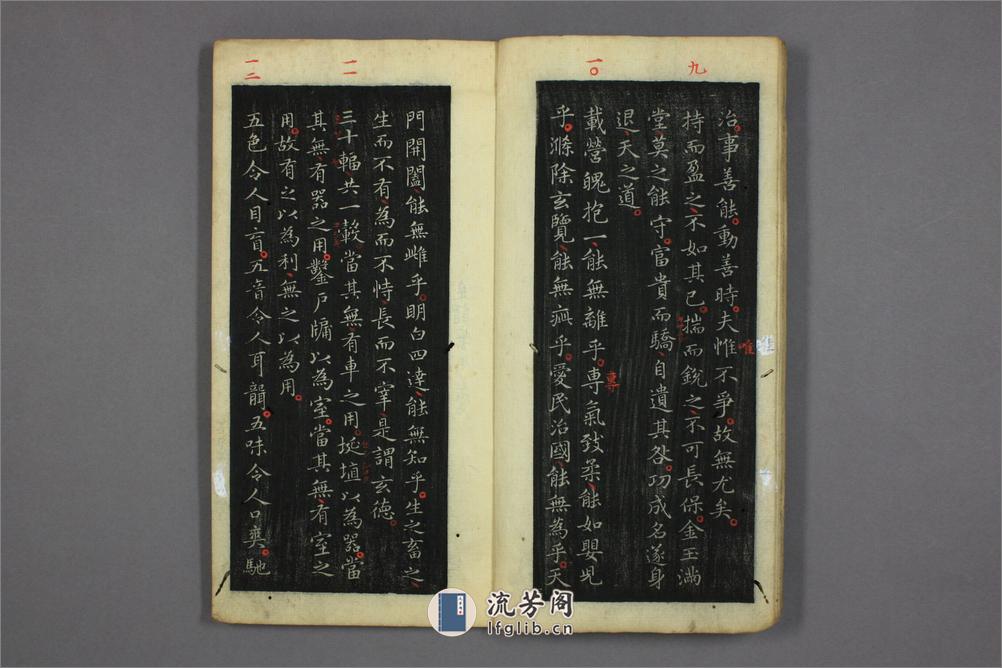 九
一〇
治事善能動善時夫惟不爭故無尤矣
惟
持而盈之不如其已揣而銳之不可長保金玉滿
堂莫之能守富貴而驕自遺其咎功成名遂身
退天之道
載營魄抱一能無離乎專氣致柔能如嬰兒
專
乎滌除玄覽能無疵乎愛民治國能無為乎天
一一
一二
門開闔能無雌乎明白四達能無知乎生之畜之
生而不有為而不恃長而不宰是謂玄德
三十輻共一轂當其無有車之用埏埴以為器當
其無有器之用鑿戶牖以為室當其無有室之
用故有之以為利無之以為用
五色令人目盲五音令人耳聾五味令人口爽馳
流芳阁
lfglib.cn